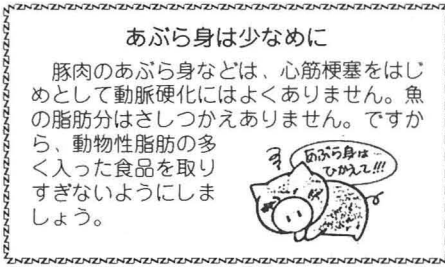 あぶら身は少なめに
豚肉のあぶら身などは、心筋梗塞をはじ
めとして動脈硬化にはよくありません。魚
の脂肪分はさしつかえありません。ですか
ら、動物性脂肪の多
く入った食品を取り
すぎないようにしま
しょう。
あぶら身は
ひかえて!!!